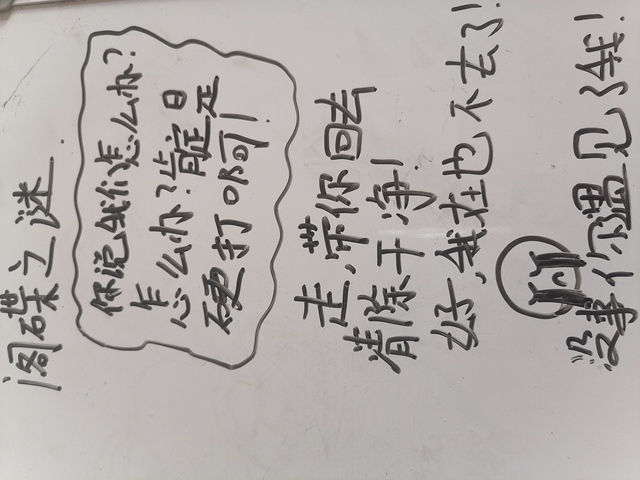 阁碟之谜
你说我们怎么办？
怎么办？肯定是
硬打啊！
走，带你回去
清除干净！
好，我在也不去了！
没事你遇见了我！